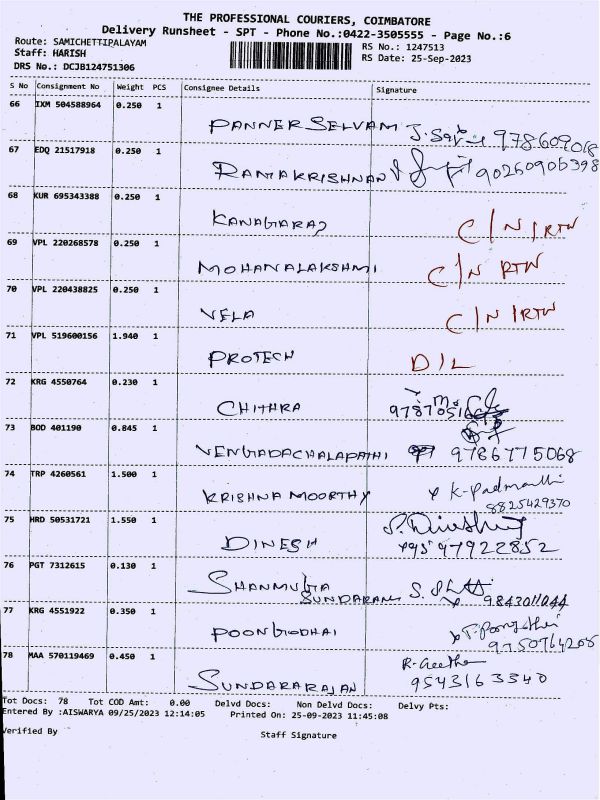 THE PROFESSIONAL COURIERS, COIMBATORE
Delivery Runsheet - SPT - Phone No.:0422-3505555 - Page No.:6
Route: SAMICHETTIPALAYAM
RS No.: 1247513
Staff: HARISH
RS Date: 25-Sep-2023
DRS No.: DCJB124751306
S No Consignment No Weight PCS Consignee Details Signature
66 IXM 504588964 0.250 1
PANNER SELVAM
67 EDQ 21517918 0.250 1
RAMAKRISHNAN 90260906398
68 KUR 695343388 0.250 1
KANAGARAJ C/N/RTN
69 VPL 220268578 0.250 1
MOHANALAKSHMI C/N RTN
70 VPL 220438825 0.250 1
VELA C/N/RTN
71 VPL 519600156 1.940 1
PROTECH D/L
72 KRG 4550764 0.230 1
CHITHRA
73 BOD 401190 0.845 1
VENGADACHALAPATHI 9786775068
74 TRP 4260561 1.500 1
KRISHNA MOORTHY K. Padmavathi
8825429370
75 HRD 50531721 1.550 1
DINESH
76 PGT 7312615 0.130 1
SHANMUGA
SUNDARAM
77 KRG 4551922 0.350 1
POONGODHAI
9750764208
78 MAA 570119469 0.450 1
R. Geetha
SUNDARARAJAN 9543163340
Tot Docs: 78 Tot COD Amt: 0.00 Delvd Docs: Non Delvd Docs: Delvy Pts:
Entered By :AISWARYA 09/25/2023 12:14:05 Printed On: 25-09-2023 11:45:08
Verified By
Staff Signature